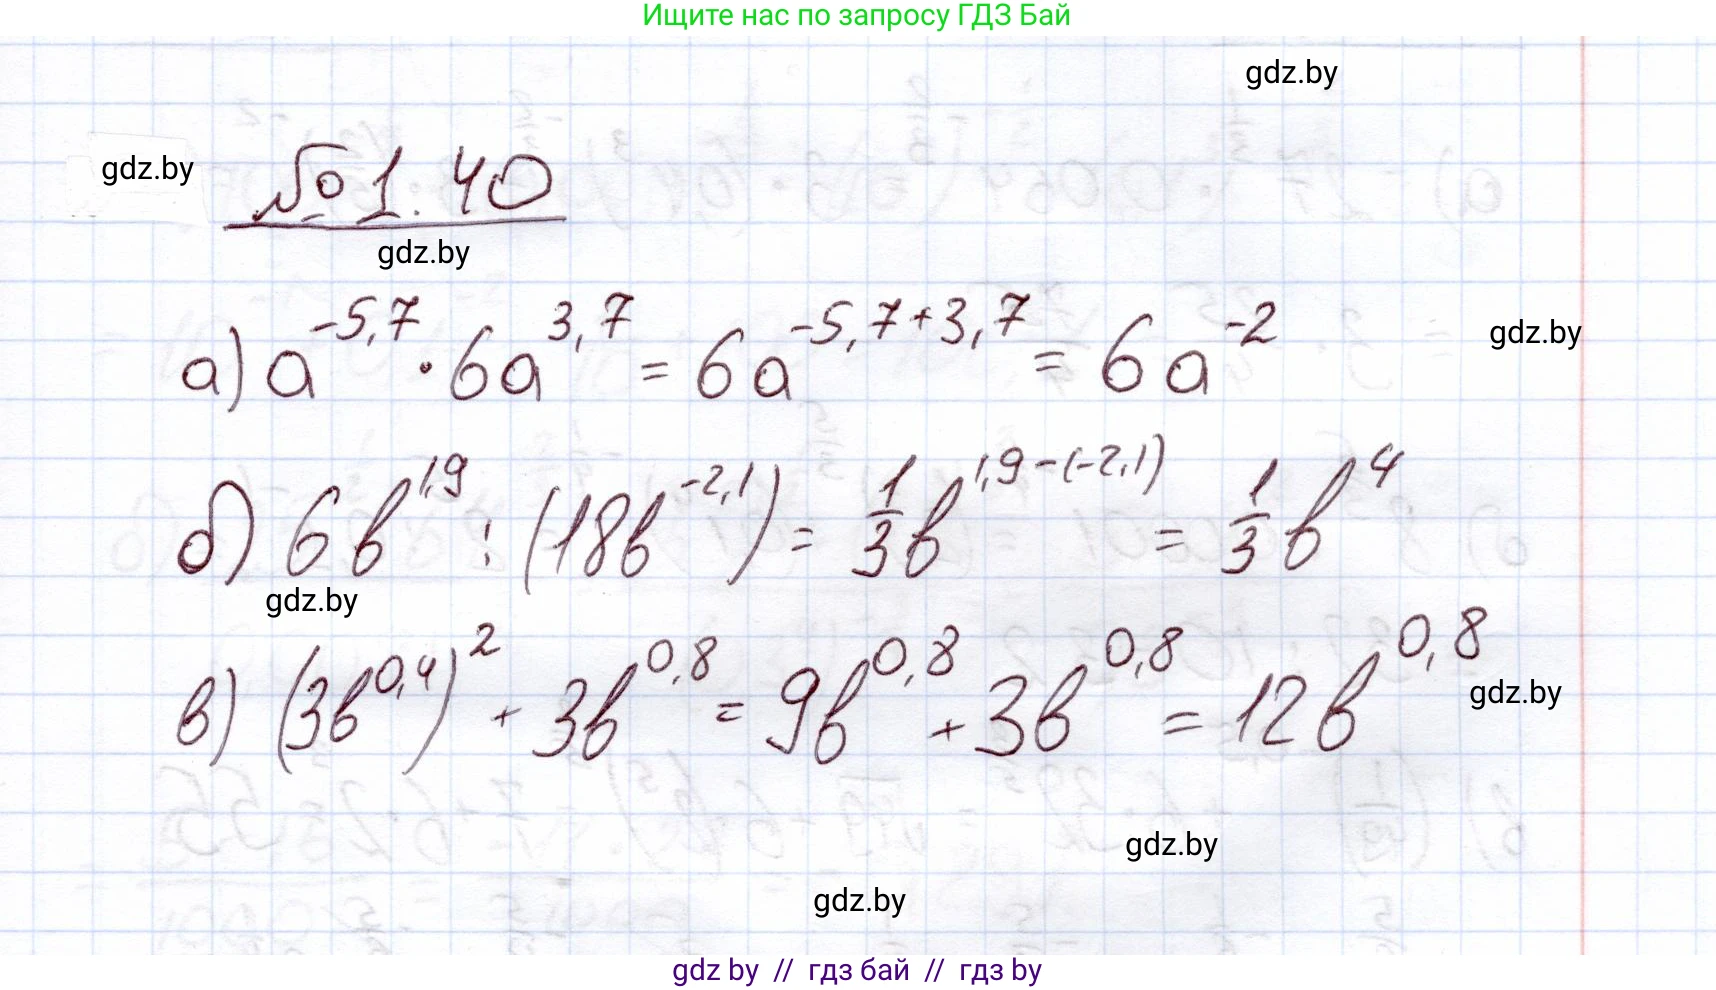 Ищите нас по запросу ГДЗ Бай
gdz.by
gdz.by
№ 1.40
gdz.by
а) a^{-5,7} · 6a^{3,7} = 6a^{-5,7+3,7} = 6a^{-2}
gdz.by
б) 6b^{1,9} : (18b^{-2,1}) = \frac{1}{3}b^{1,9-(-2,1)} = \frac{1}{3}b^{4}
gdz.by
в) (3b^{0,4})^{2} + 3b^{0,8} = 9b^{0,8} + 3b^{0,8} = 12b^{0,8}
gdz.by
gdz.by
gdz.by
gdz by // гдз бай // гдз by